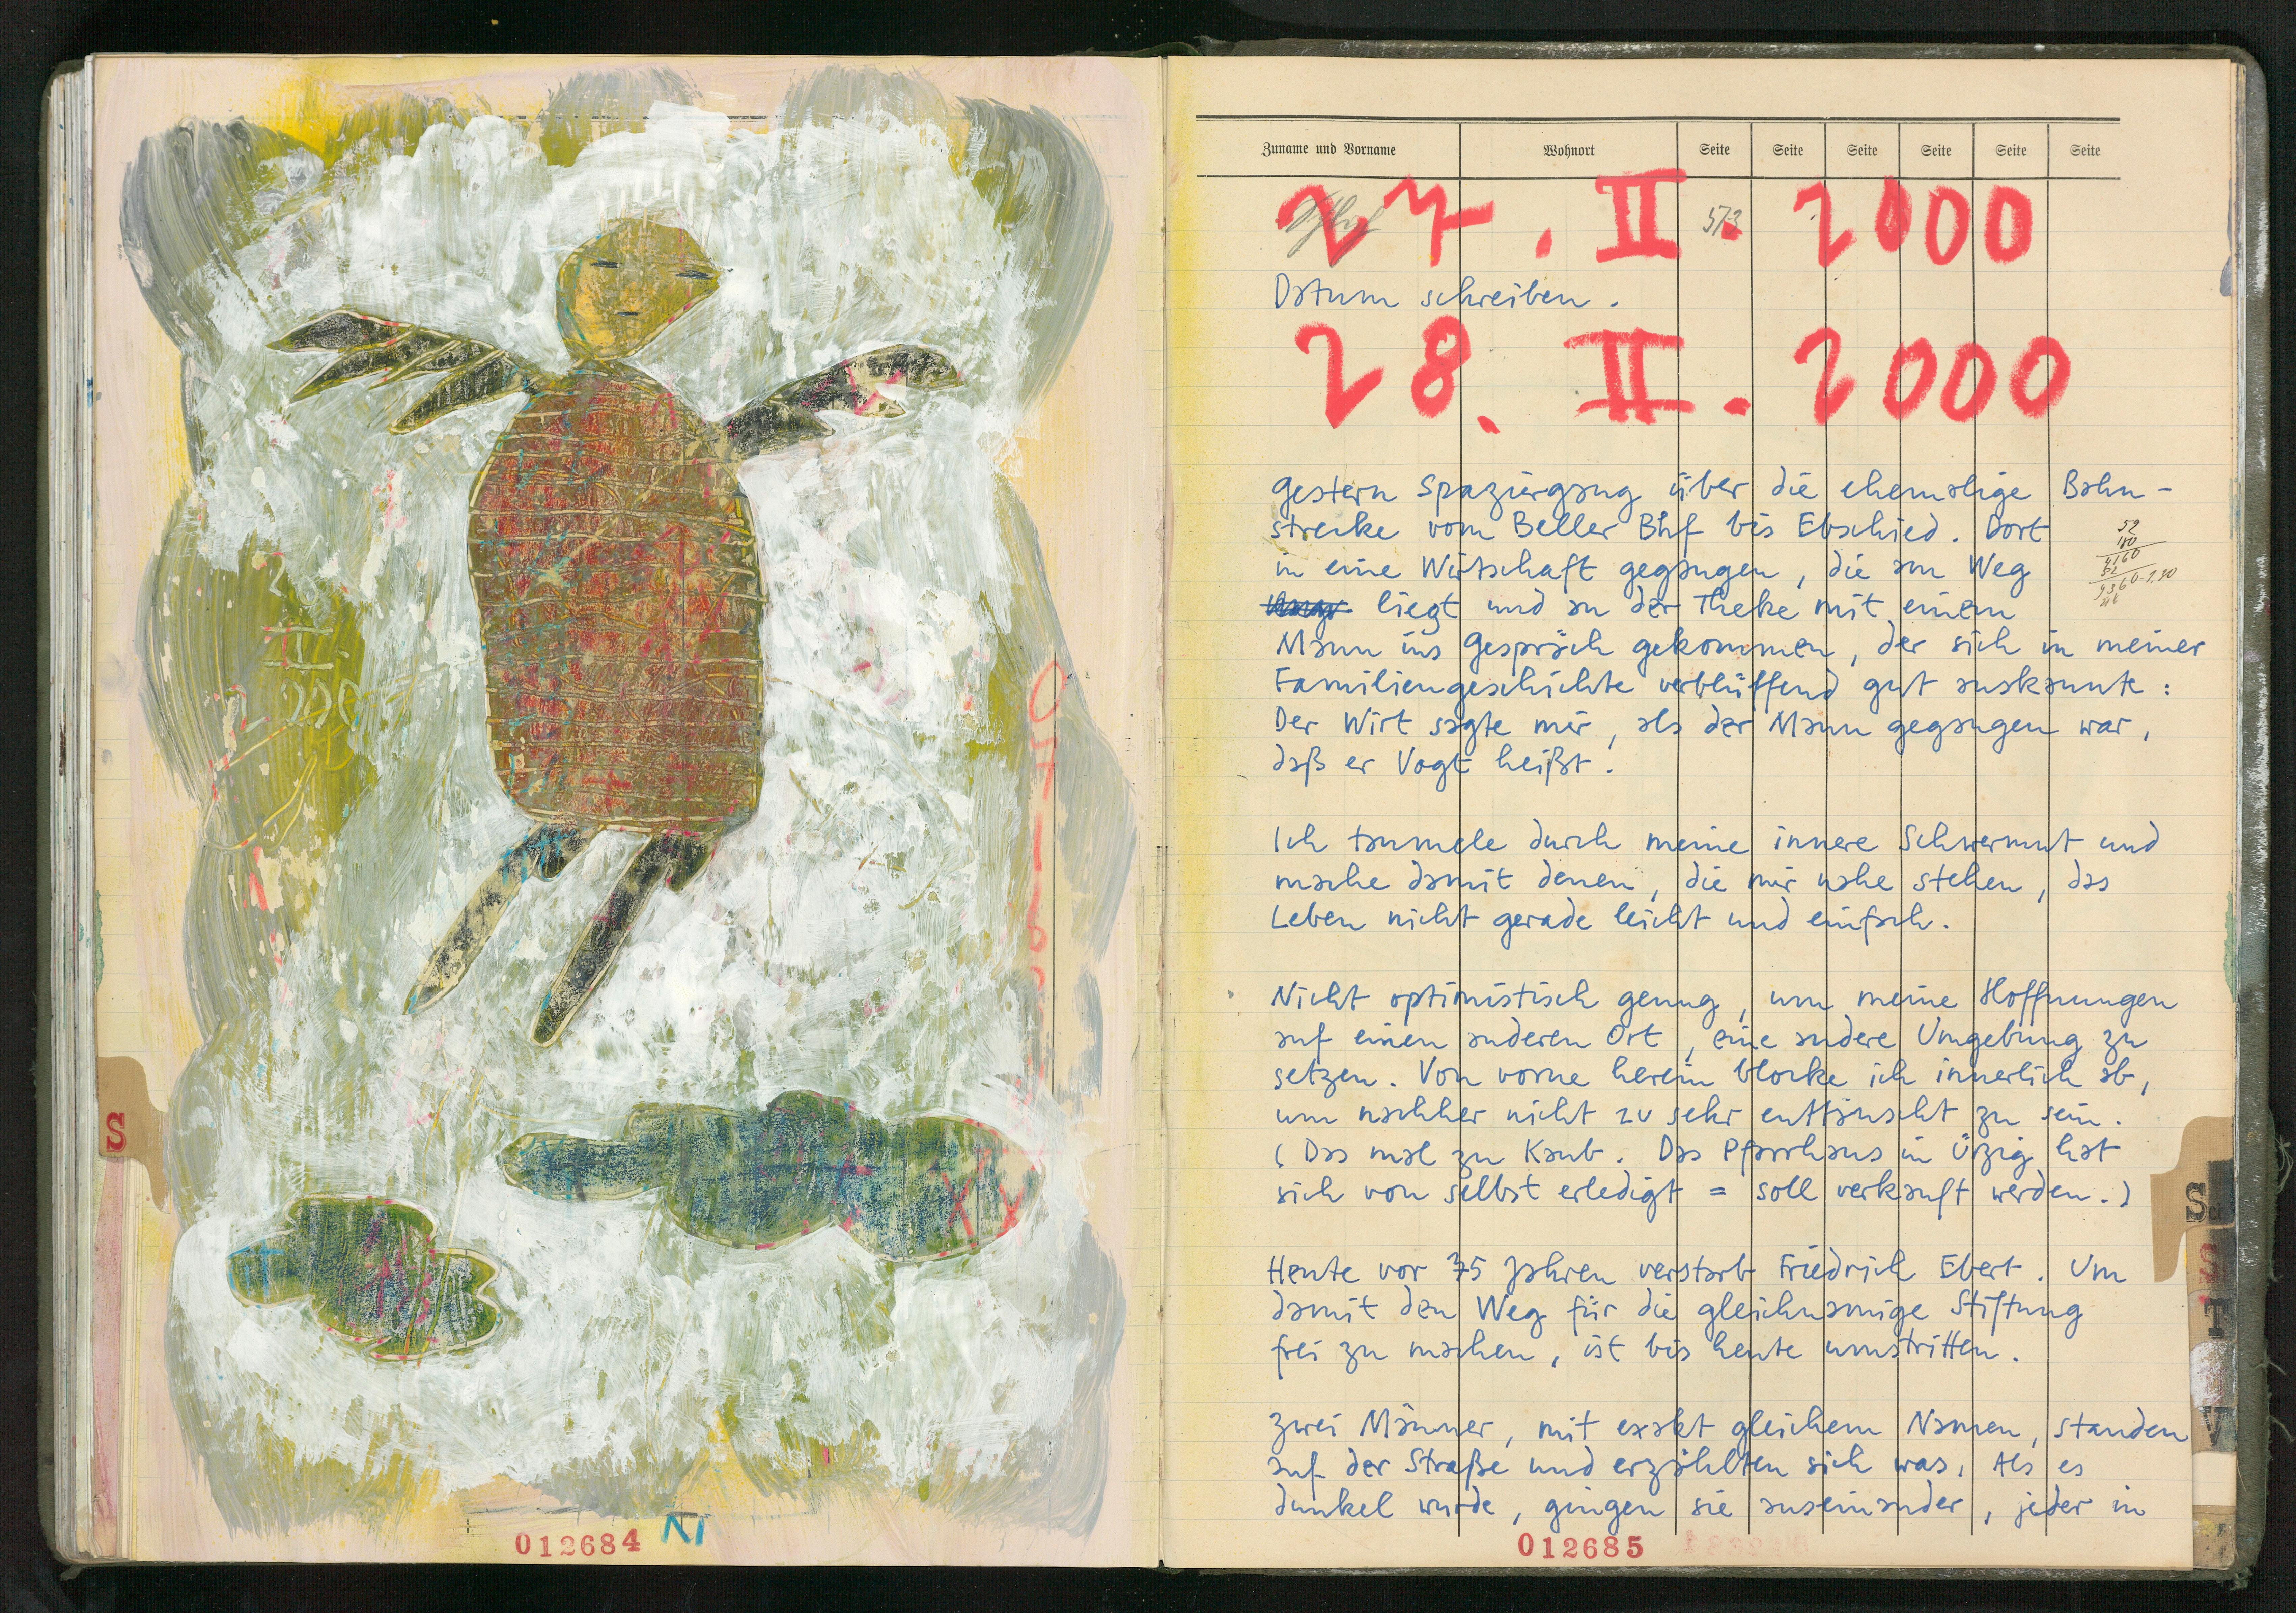 S
012684 NI
Zuname und Vorname Wohnort Seite Seite Seite Seite Seite Seite
27. II. 2000
573
Datum schreiben.
28. II. 2000
Gestern Spaziergang über die ehemalige Bahn-
strecke vom Beller Bhf bis Ebschied. Dort
in eine Wirtschaft gegangen, die am Weg
liegt und an der Theke mit einem
Mann ins Gespräch gekommen, der sich in meiner
Familiengeschichte verblüffend gut auskannte:
Der Wirt sagte mir, als der Mann gegangen war,
daß er Vogt heißt.
52
180
4160
52
9360
Ich taumele durch meine innere Schwermut und
mache damit denen, die mir nahe stehen, das
Leben nicht gerade leicht und einfach.
Nicht optimistisch genug, um meine Hoffnungen
auf einen anderen Ort, eine andere Umgebung zu
setzen. Von vorne herein blocke ich innerlich ab,
um nachher nicht zu sehr enttäuscht zu sein.
(Das mal zu Kaub. Das Pfarrhaus in Ürzig hat
sich von selbst erledigt = soll verkauft werden.)
Heute vor 75 Jahren verstarb Friedrich Ebert. Um
damit den Weg für die gleichnamige Stiftung
frei zu machen, ist bis heute umstritten.
Zwei Männer, mit exakt gleichem Namen, standen
auf der Straße und erzählten sich was. Als es
dunkel wurde, gingen sie auseinander, jeder in
012685
Sch
S
T
V